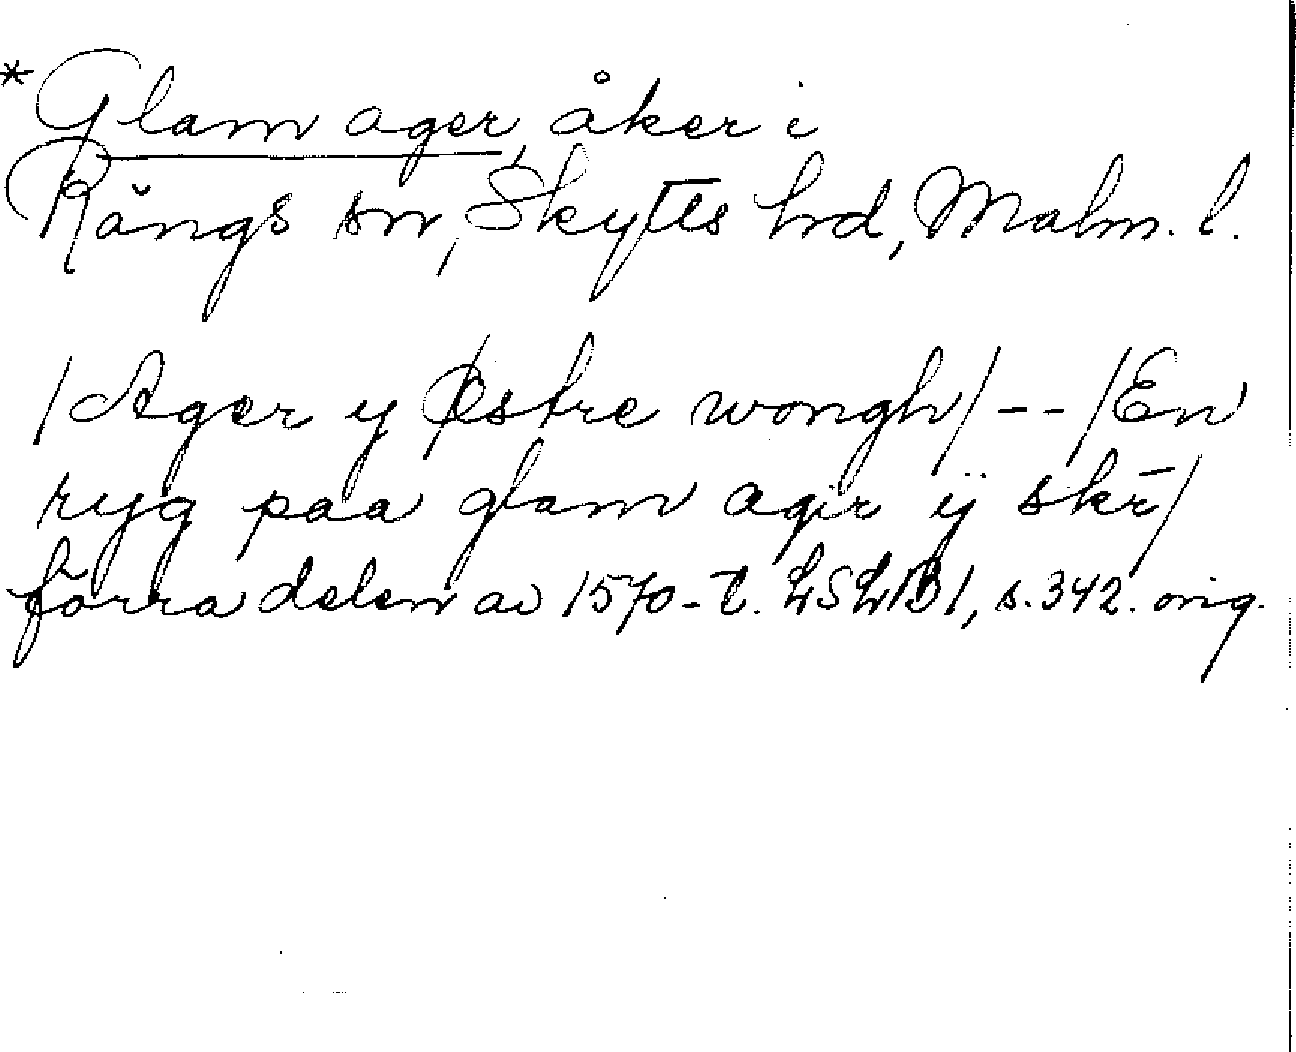 *Glam ager, åker i
Rängs sn, Skytts hrd, Malm. l.
/Ager y Østre wongh/ -- /En
ryg paa glam agir ÿ skr̄/
förra delen av 1570-t. LSLB I, s. 342. orig.